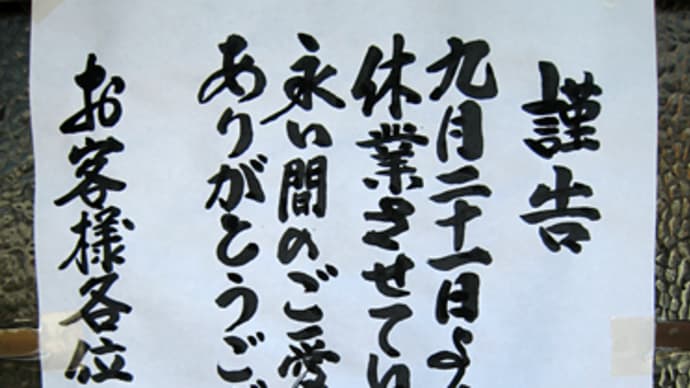 謹告
九月二十一日より
休業させてい
永い間のご愛
ありがとうご
お客様各位